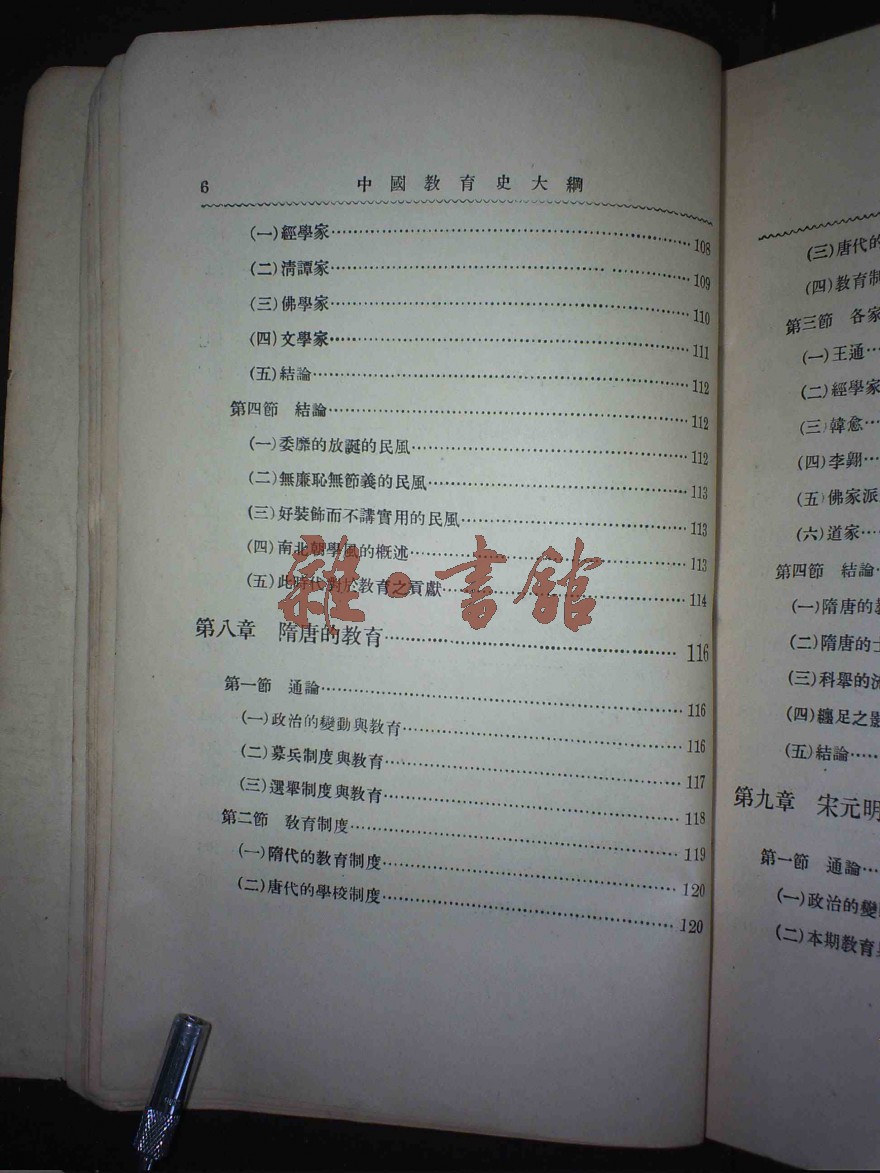 6 中國教育史大綱
(一)經學家 108
(二)清譚家 109
(三)佛學家 110
(四)文學家 111
(五)結論 112
第四節 結論 112
(一)委靡的放誕的民風 112
(二)無廉恥無節義的民風 113
(三)好裝飾而不講實用的民風 113
(四)南北朝學風的概述 113
(五)此時代對於教育之貢獻 114
第八章 隋唐的教育 116
第一節 通論 116
(一)政治的變動與教育 116
(二)募兵制度與教育 117
(三)選舉制度與教育 118
第二節 教育制度 119
(一)隋代的教育制度 120
(二)唐代的學校制度 120
雜·書館
(三)唐代的
(四)教育制
第三節 各家
(一)王通
(二)經學家
(三)韓愈
(四)李翱
(五)佛家派
(六)道家
第四節 結論
(一)隋唐的
(二)隋唐的士
(三)科舉的流
(四)纏足之影
(五)結論
第九章 宋元明
第一節 通論
(一)政治的變
(二)本期教育